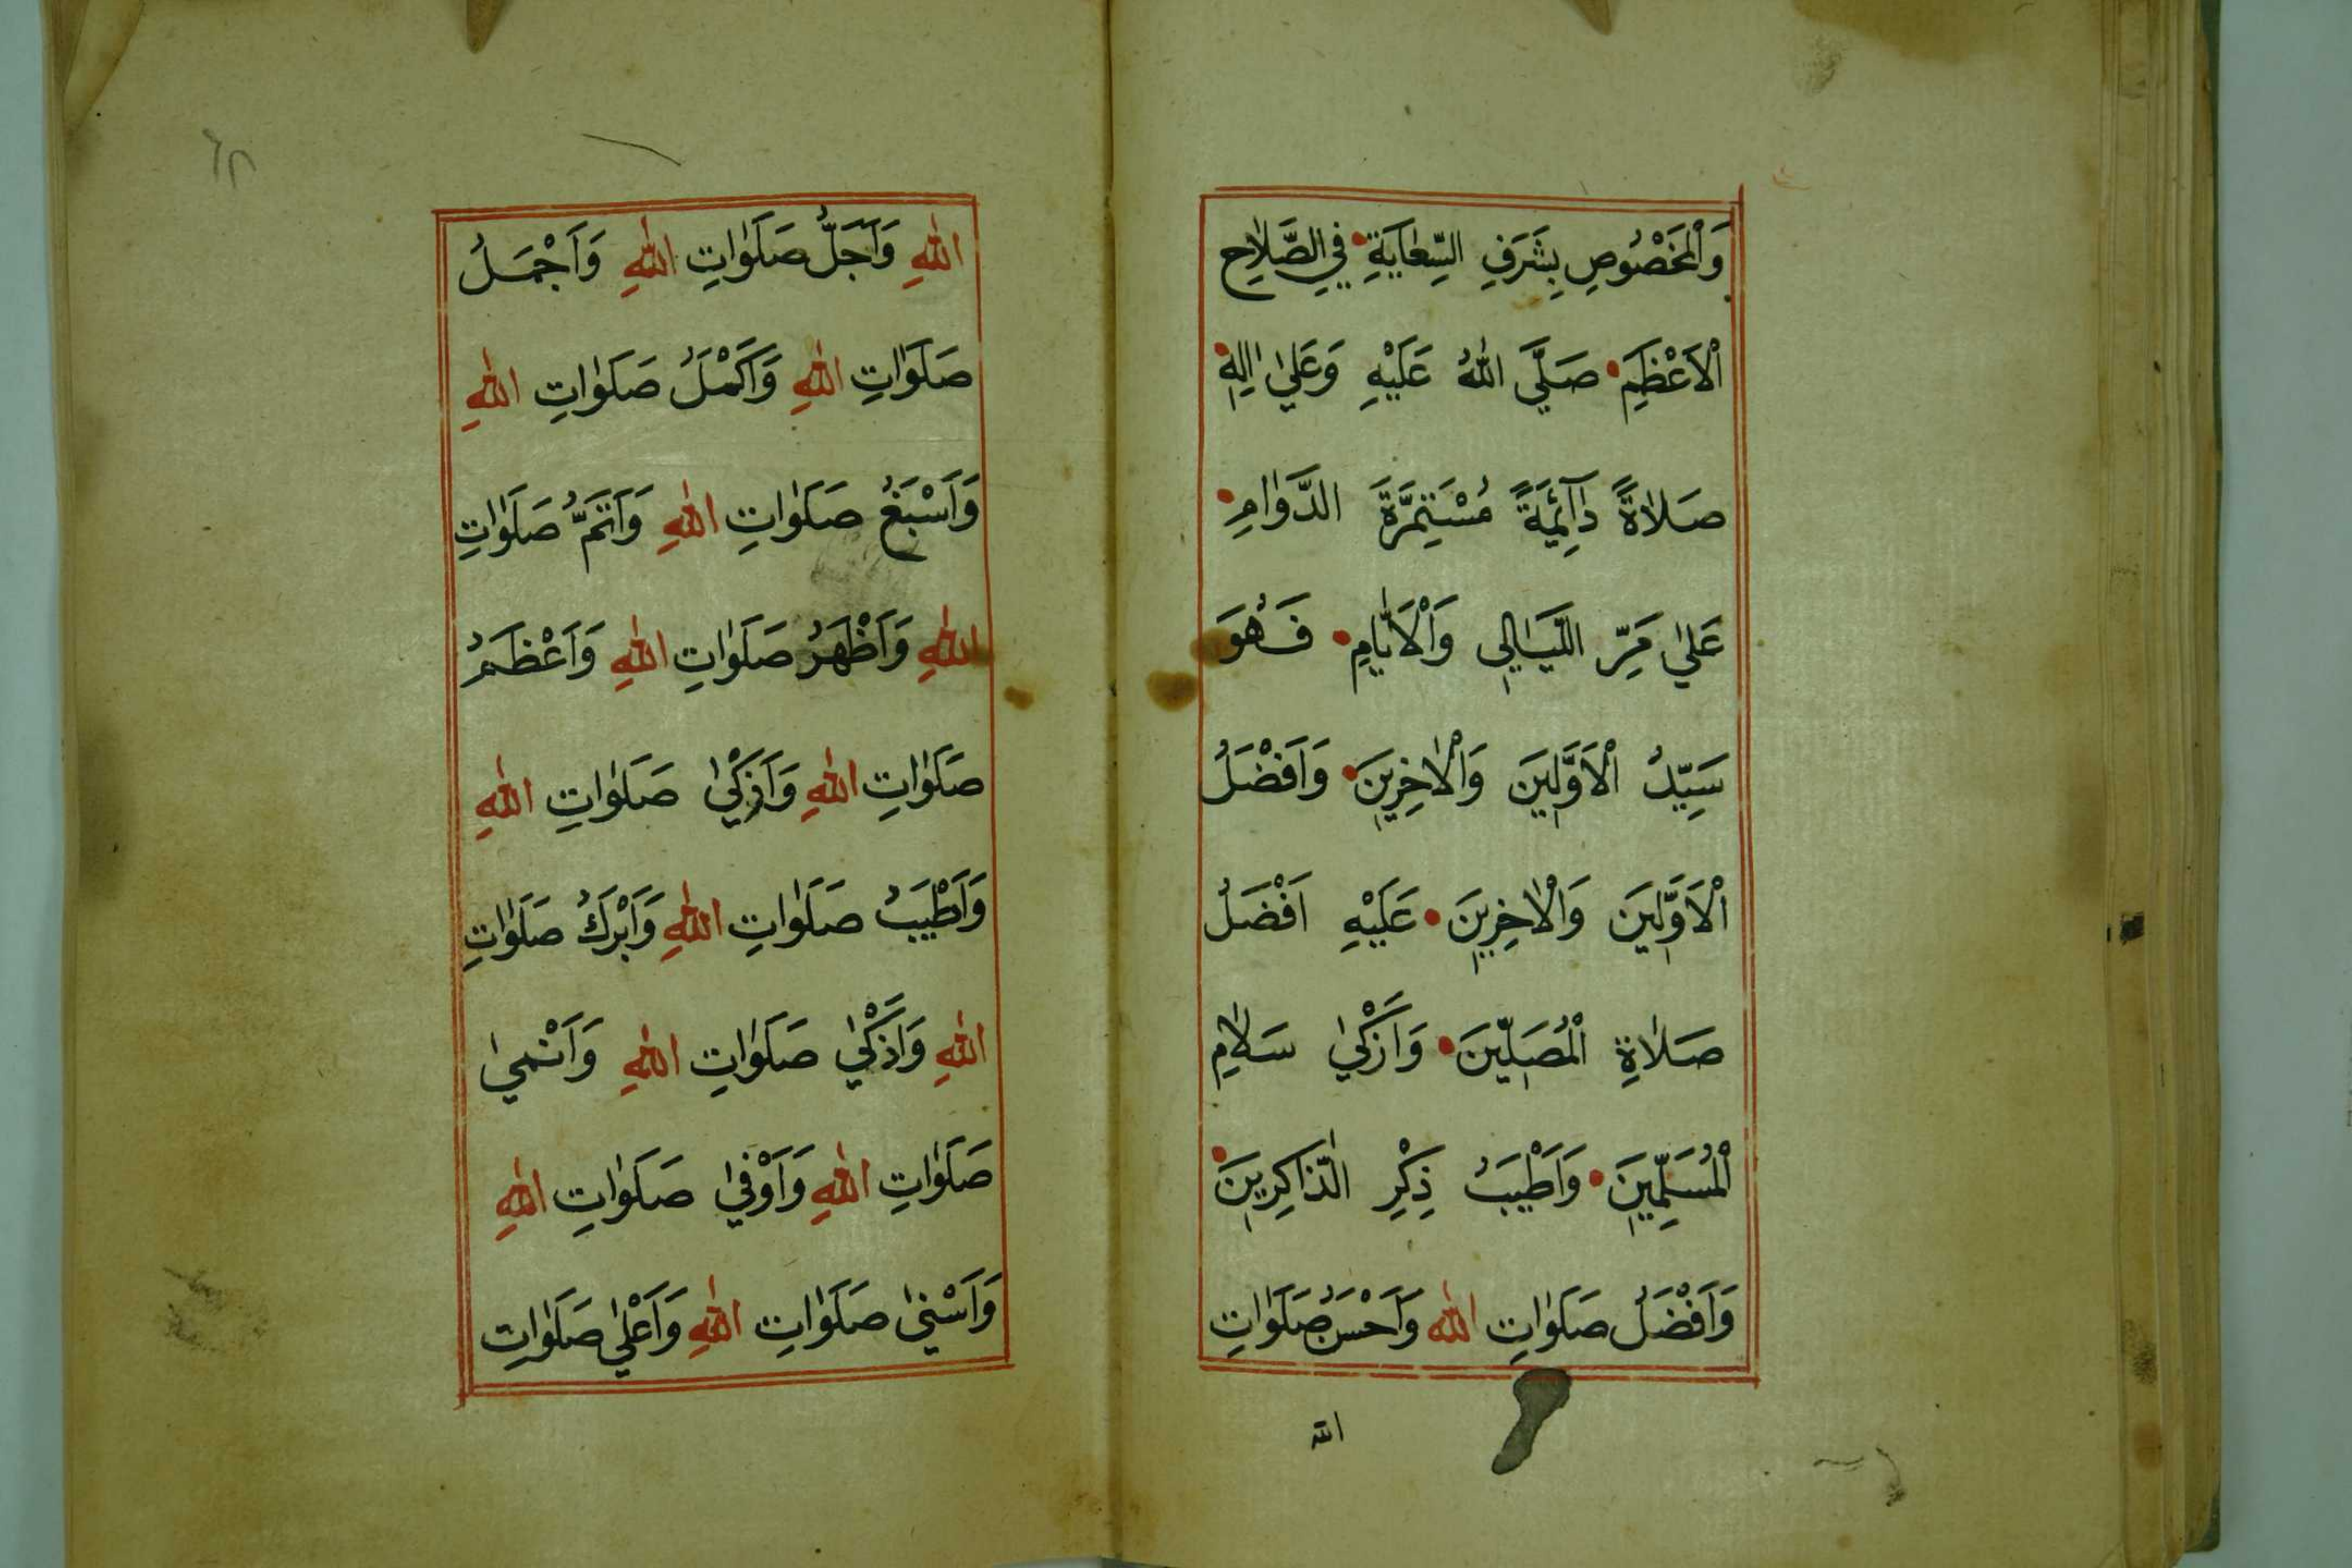 وَالْمَخْصُوصِ بِشَرَفِ السِّعَايَةِ فِي الصَّلَاحِ
الْاَعْظَمِ صَلَّى اللهُ عَلَيْهِ وَعَلٰى اٰلِهِ
صَلَاةً دَآئِمَةً مُسْتَمِرَّةَ الدَّوَامِ
عَلٰى مَرِّ اللَّيَالِي وَالْاَيَّامِ فَهُوَ
سَيِّدُ الْاَوَّلِينَ وَالْاٰخِرِينَ وَاَفْضَلُ
الْاَوَّلِينَ وَالْاٰخِرِينَ عَلَيْهِ اَفْضَلُ
صَلَاةِ الْمُصَلِّينَ وَاَزْكٰى سَلَامِ
الْمُسَلِّمِينَ وَاَطْيَبُ ذِكْرِ الذَّاكِرِينَ
وَاَفْضَلُ صَلَوَاتِ الله وَاَحْسَنُ صَلَوَاتِ
الله
اللهِ وَاَجَلُّ صَلَوَاتِ اللهِ وَاَجْمَلُ
صَلَوَاتِ اللهِ وَاَكْمَلُ صَلَوَاتِ اللهِ
وَاَسْبَغُ صَلَوَاتِ اللهِ وَاَتَمُّ صَلَوَاتِ
اللهِ وَاَظْهَرُ صَلَوَاتِ اللهِ وَاَعْظَمُ
صَلَوَاتِ اللهِ وَاَزْكٰى صَلَوَاتِ اللهِ
وَاَطْيَبُ صَلَوَاتِ اللهِ وَاَبْرَكُ صَلَوَاتِ
اللهِ وَاَذْكٰى صَلَوَاتِ اللهِ وَاَنْمٰى
صَلَوَاتِ اللهِ وَاَوْفٰى صَلَوَاتِ اللهِ
وَاَسْنٰى صَلَوَاتِ اللهِ وَاَعْلٰى صَلَوَاتِ